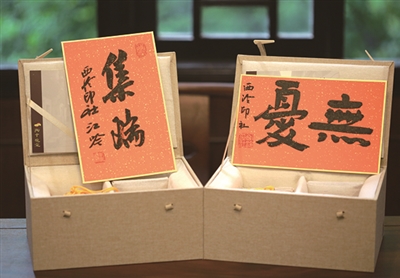 集瑞
西泠印社江吟
無憂
西泠印社